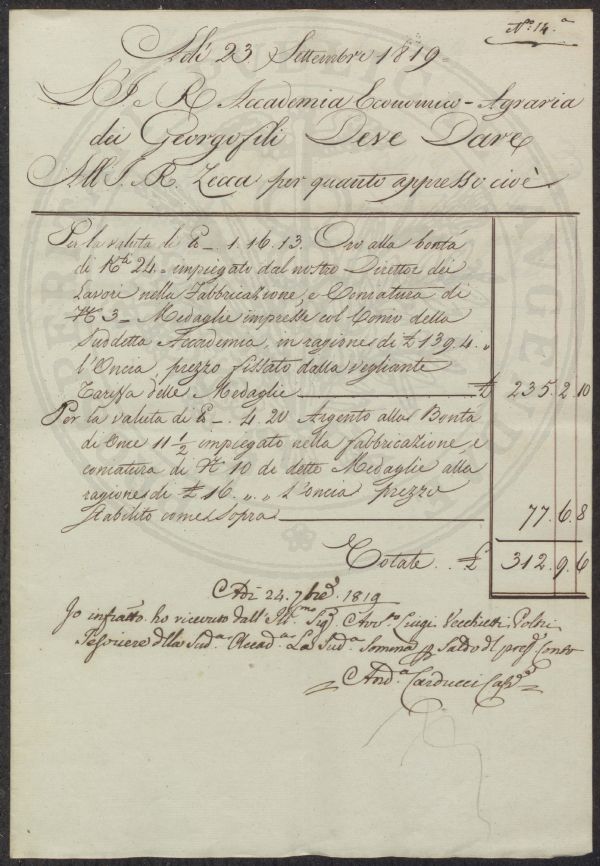 N.° 14.a
Adì 23 Settembre 1819
L'I. e R. Accademia Economico-Agraria
dei Georgofili Deve Dare
All'I. e R. Zecca per quanto appresso cioè
Per la valuta di 1. 16. 13. Oro alla bontà
di K.ti 24.. impiegato dal nostro Direttor dei
Lavori nella Fabbricazione, e Coniatura di
N. 3 Medaglie impresse col Conio della
Suddetta Accademia, in ragione di £ 139. 4. „
l'Oncia, prezzo fissato dalla vegliante
Tariffa delle Medaglie £ 235. 2. 10
Per la valuta di 4. 20 Argento alla Bontà
di Once 11 1/2 impiegato nella fabbricazione, e
coniatura di N. 10 di dette Medaglie alla
ragione di £ 16. „ „ L'oncia prezzo
stabilito come sopra 77. 6. 8
Totale .. £ 312. 9. 6
Adì 24. 7bre 1819
Io infratto. ho ricevuto dall'Ill.mo Sig. Avv.to Luigi Vecchietti Poltri
Tesoriere della Sud.a Accad.a La Sud.a Somma Saldo del pres. Conto
And.a Carducci Cass.e